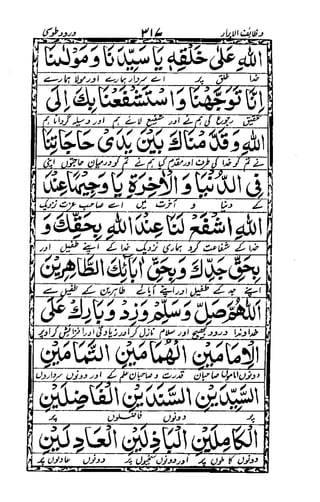 وظائف الابرار ۳۱۷ درود طوسی
اللهِ عَلٰى خَلْقِهٖ يَا سَيِّدَنَا وَمَوْلٰىنَا
خدا خلق پر اے سردار ہمارے اور مولا ہمارے
اِنَّا تَوَجَّهْنَا وَاسْتَشْفَعْنَا بِكَ اِلَى
تحقیق رجوع کی ہم نے اور شفیع لائے ہم اور وسیلہ گردانا ہم
اللهِ وَقَدَّمْنَاكَ بَيْنَ يَدَىْ حَاجَاتِنَا
نے تم کو خدا کی طرف اور مقدم کیا ہم نے تم کو درمیان حاجتوں اپنی
فِى الدُّنْيَا وَالْاٰخِرَةِ يَا وَجِيْهًا عِنْدَ
کے دنیا و آخرت میں اے صاحب عزت نزدیک
اللهِ اشْفَعْ لَنَا عِنْدَ اللهِ بِحَقِّكَ وَ
خدا کے شفاعت کرو ہماری نزدیک خدا کے اپنے طفیل اور
بِحَقِّ جَدِّكَ وَبِحَقِّ اٰبَآئِكَ الطَّاهِرِيْنَ
اپنے جد کے طفیل اور اپنے آبائے طاہرین کے طفیل سے
اَللّٰهُمَّ صَلِّ وَسَلِّمْ وَزِدْ وَبَارِكْ عَلَى
خداوندا درود بھیج اور سلام نازل کر اور زیادتی اور افزائش کر اوپر
الْاِمَامَيْنِ الْهُمَامَيْنِ التَّمَامَيْنِ
دونوں صاحبان قدرت و صاحبان علم کے اور دونوں سرداروں
السَّيِّدَيْنِ السَّنَدَيْنِ الْفَاضِلَيْنِ
پر دونوں فاضلوں پر
الْكَامِلَيْنِ الْبَاذِلَيْنِ الْعَادِلَيْنِ
دونوں کاملوں پر اور دونوں سخیوں پر دونوں عادلوں پر